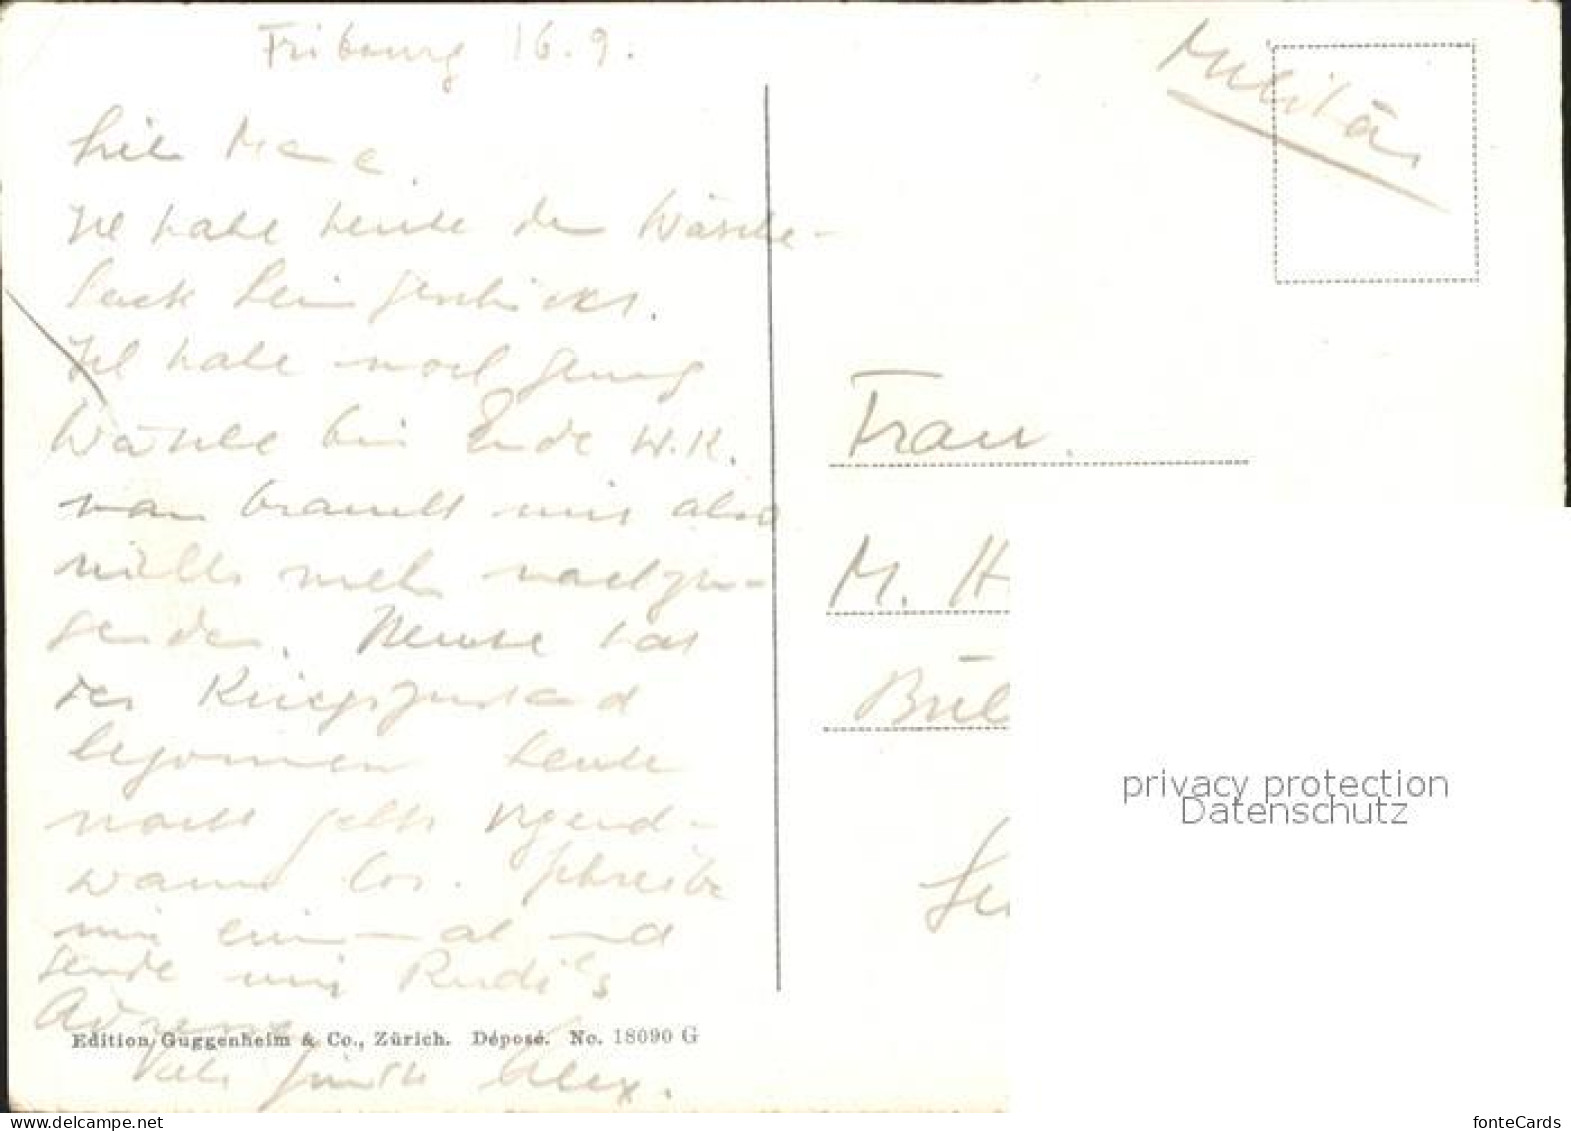 Fribourg 16.9.
Militär
Ich habe heute den Wäsche-
sack heim geschickt.
Ich habe noch genug
Wäsche bis Ende W.K.
man braucht mir also
nichts mehr nachzu-
senden. Heute hat
der Kriegszustand
begonnen heute
nacht gehts irgend-
wann los. Schreibe
mir einmal und
sende mir Rudi's
Adresse
Viele Grüsse Alex.
Edition Guggenheim & Co., Zürich. Déposé. No. 18090 G
Frau.
M. H
Bül
privacy protection
Datenschutz
www.delcampe.net
fonteCards